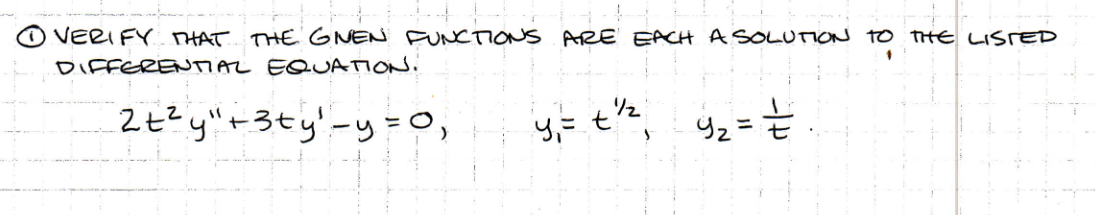 ① VERIFY THAT THE GIVEN FUNCTIONS ARE EACH A SOLUTION TO THE LISTED
DIFFERENTIAL EQUATION.
2t²y"+3ty'-y=0, y₁=t^{1/2}, y₂=1/t.